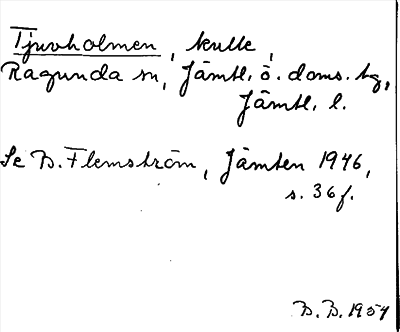 Tjuvholmen, kulle,
Ragunda sn, Jämtl. ö. doms. tg,
Jämtl. l.
Se B. Flemström, Jämten 1946,
s. 36 f.
B. B. 1954